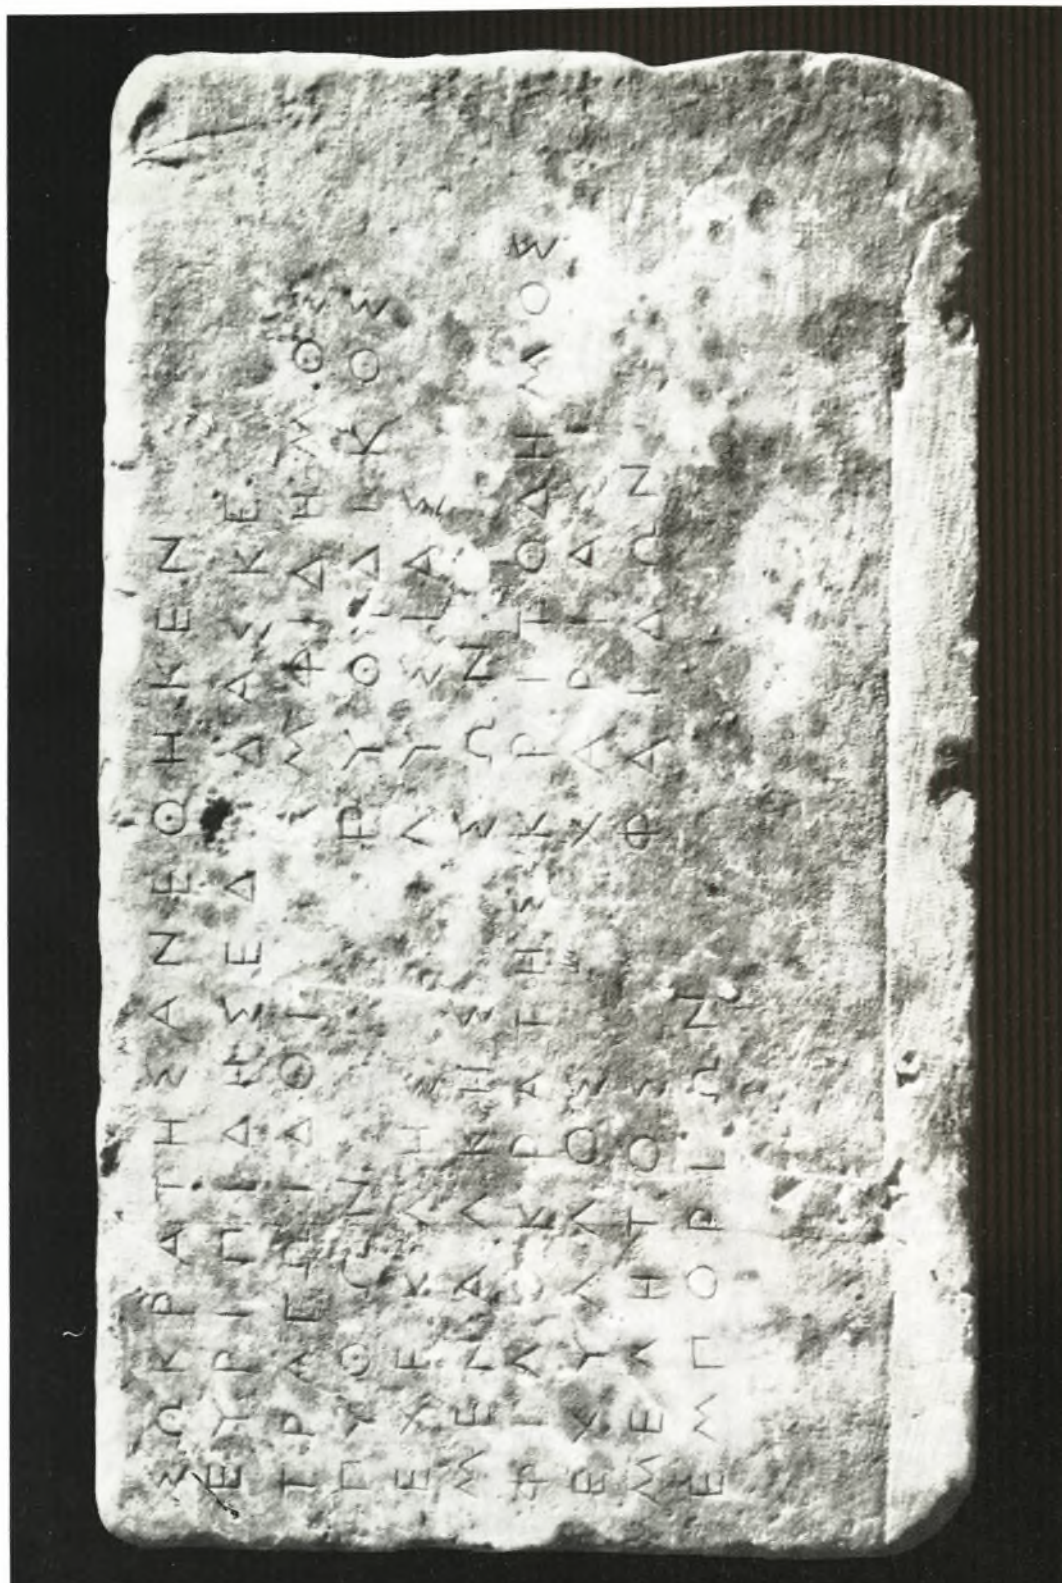 ΣΩΚΡΑΤΗΣΑΝΕΘΗΚΕΝ
ΕΥΡΙΠΙΔΗΣΕΔΙΔΑΣΚΕ
ΤΡΑΓΩΙΔΟΙ ΑΜΦΙΔΗΜΟΣ
ΠΥΘΩΝ ΕΥΘΥΔΙΚΟΣ
ΕΧΕΚΛΗΣ ΛΥΣΙΑΣ
ΜΕΝΑΛΚΗΣ ΣΩΝ
ΦΙΛΟΚΡΑΤΗΣ ΚΡΙΤΟΔΗΜΟΣ
ΕΧΥΛΛΟΣ ΧΑΡΙΑΣ
ΜΕΛΗΤΟΣ ΦΑΙΔΩΝ
ΕΜΠΟΡΙΩΝ